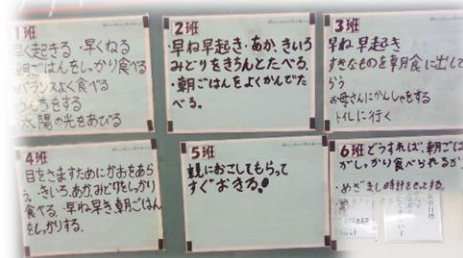 1班
早く起きる・早くねる
朝ごはんをしっかり食べる
バランスよく食べる
うんちをする
太陽の光をあびる
2班
早ね早起き・あか、きいろ
みどりをきちんとたべる。
・朝ごはんをよくかんでた
べる。
3班
早ね 早起き
すきなものを朝食に出して
もらう
お母さんにかんしゃをする
トイレに行く
4班
目をさますためにかおをあら
う。きいろ、あか、みどりをしっかり
食べる。早ね早き朝ごはん
をしっかりする。
5班
親におこしてもらって
すぐおきる!
6班 どうすれば、朝ごは
がしっかり食べられるか
・めざまし時計をセットする。